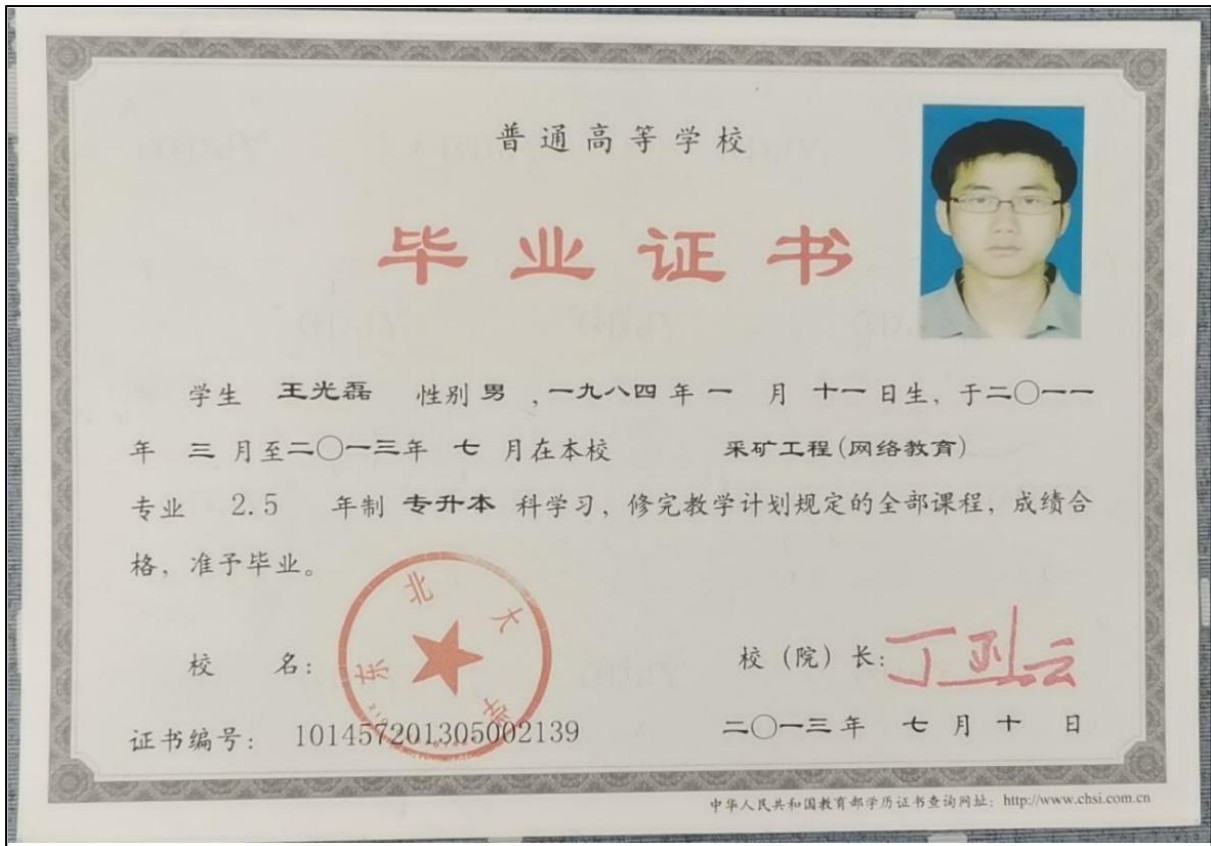 普通高等学校
毕业证书
学生 王光磊 性别 男 ,一九八四 年 一 月 十一 日生, 于二〇一一
年 三 月至二〇一三年 七 月在本校 采矿工程(网络教育)
专业 2.5 年制 专升本 科学习, 修完教学计划规定的全部课程, 成绩合
格, 准予毕业。
东北大学
校 名: 校 (院) 长: 丁烈云
证书编号: 101457201305002139 二〇一三 年 七 月 十 日
中华人民共和国教育部学历证书查询网址: http://www.chsi.com.cn